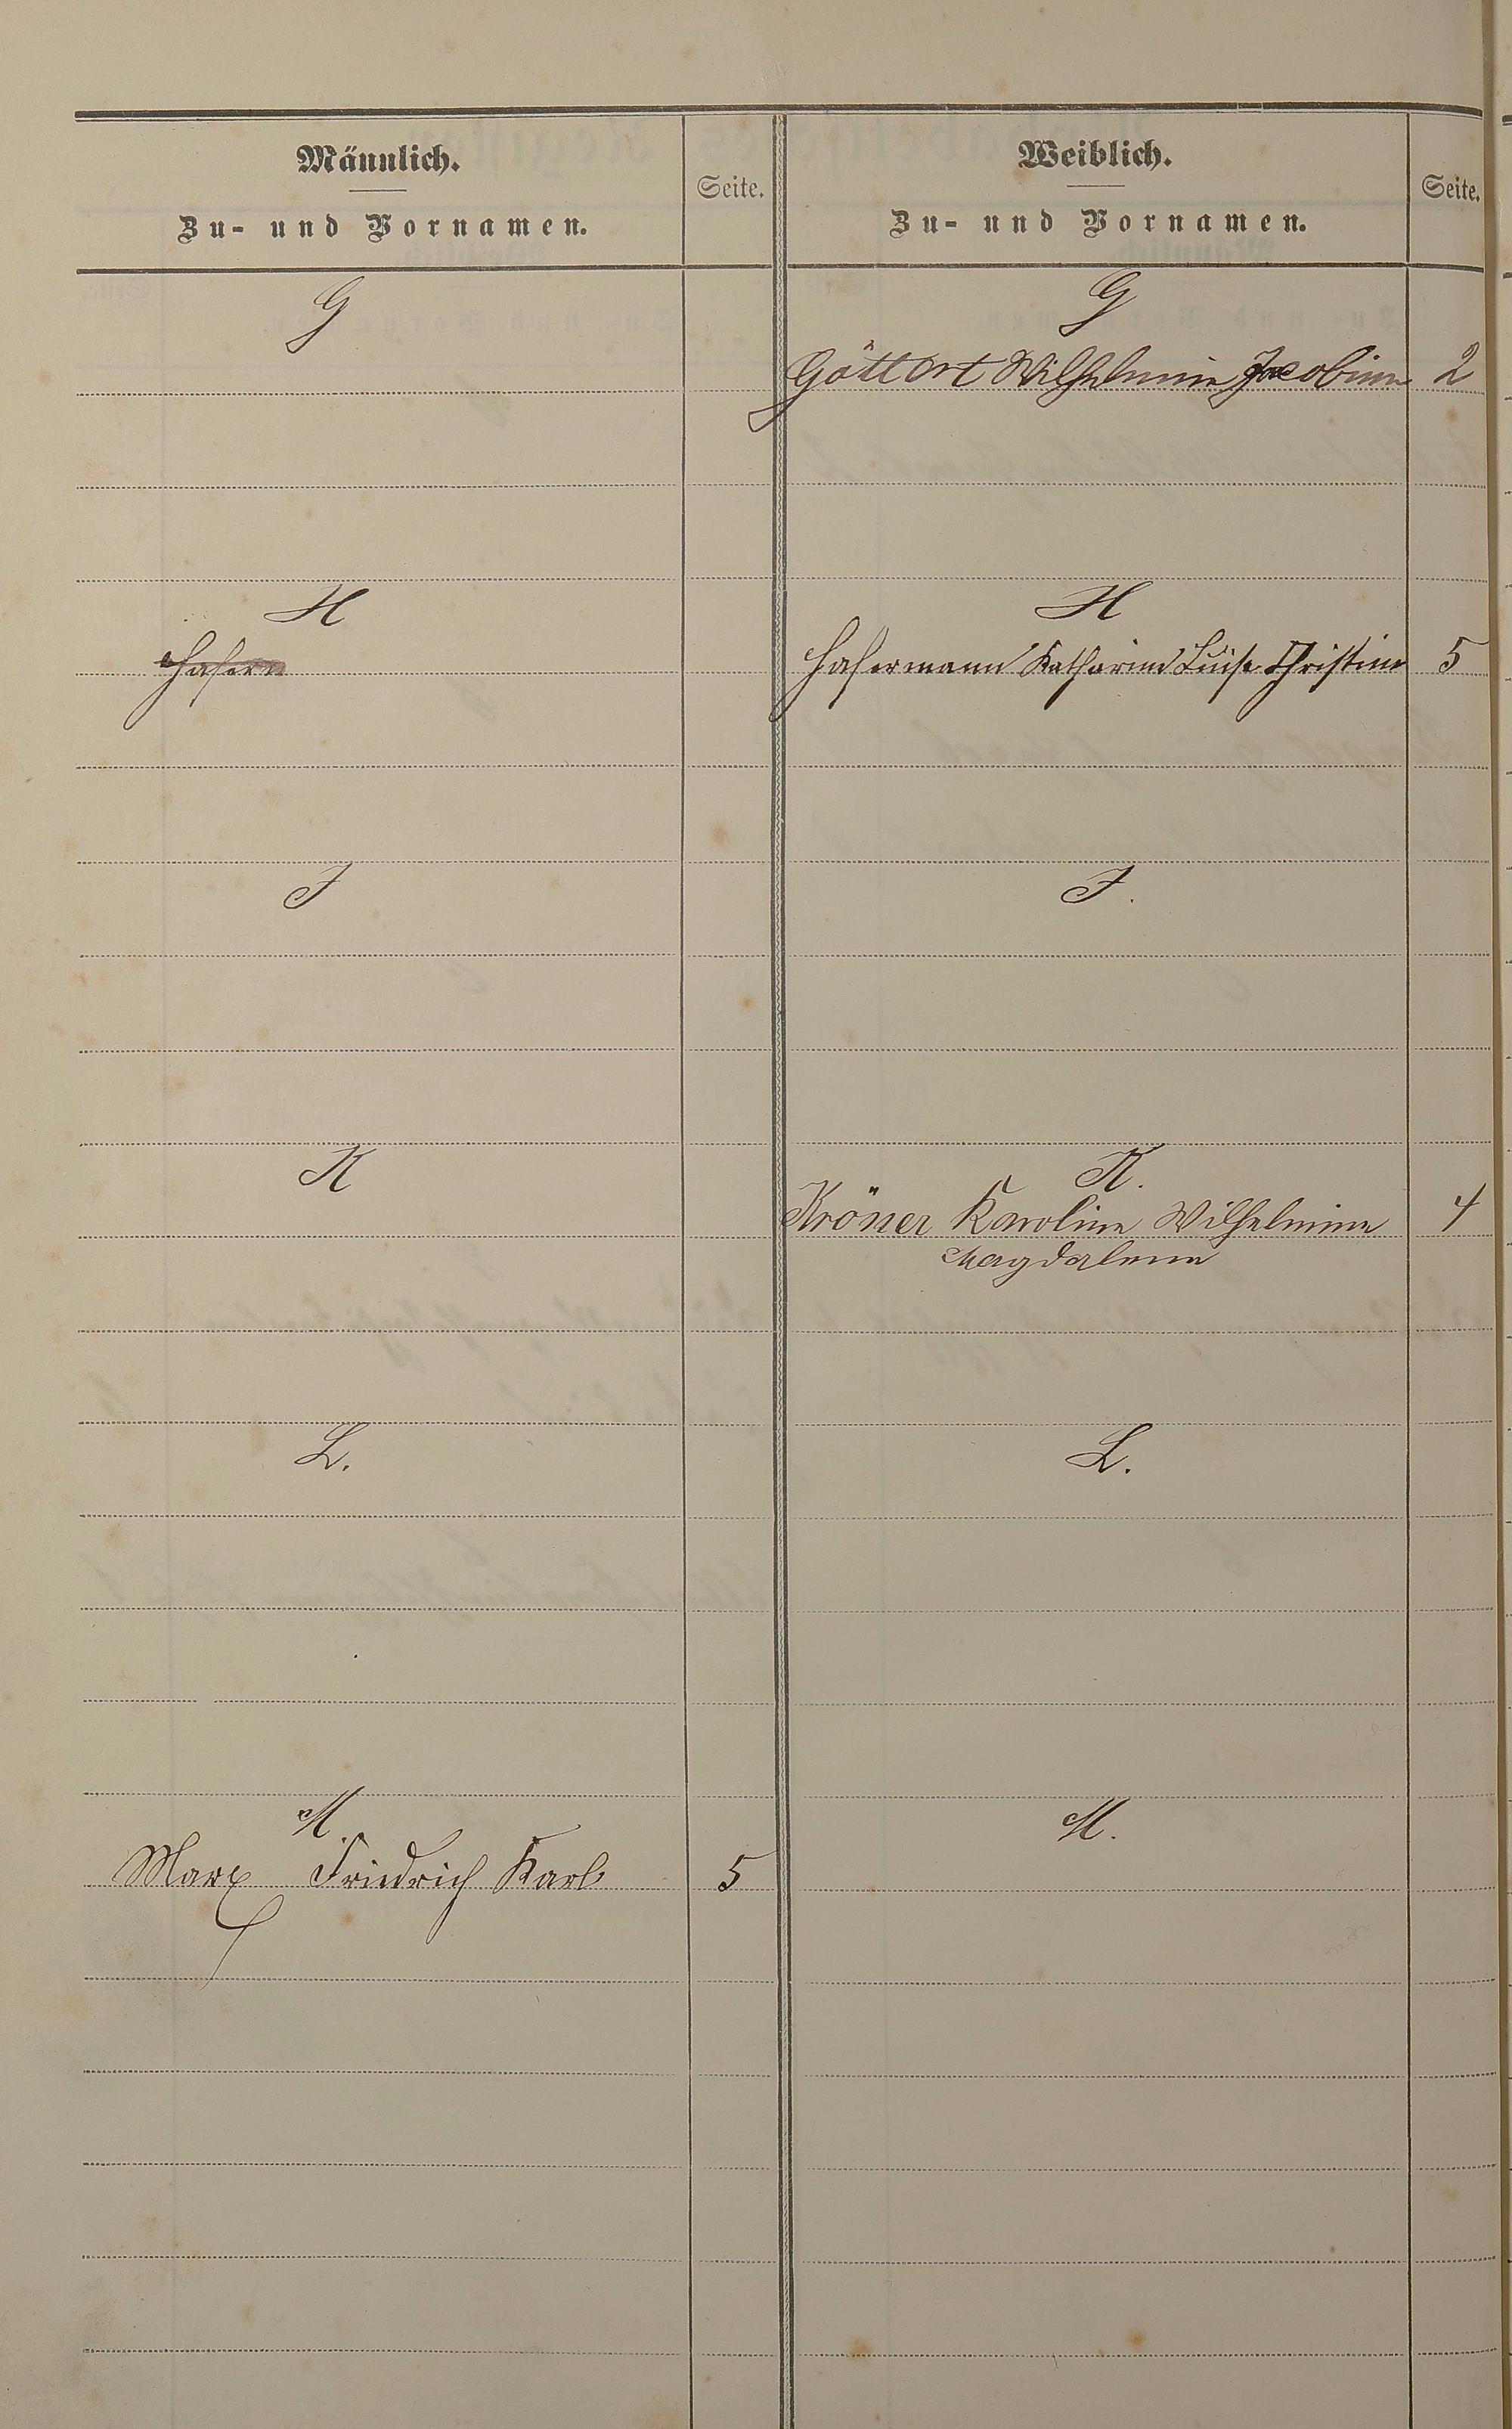 Männlich.
Zu- und Vornamen.
Seite.
Weiblich.
Zu- und Vornamen.
Seite.
G
G
Göttert Wilhelmine Jacobine 2
H
H
Hafermann Katharine Luise Christine 5
J
J.
K
K.
Kröner Karoline Wilhelmine 4
Magdalene
L.
L.
M.
M.
Marx Friedrich Karl 5